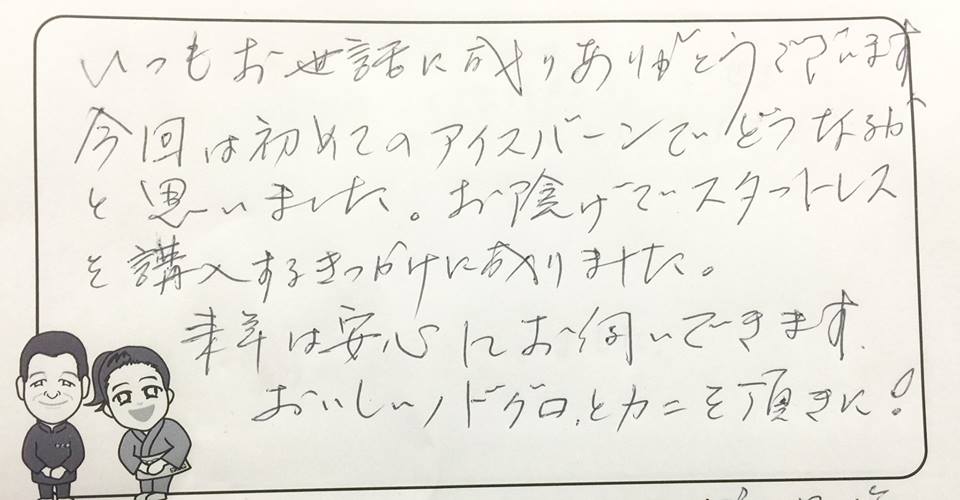 いつもお世話に成りありがとうございます。
今回は初めてのアイスバーンでどうなるか
と思いました。お陰げでスタットレス
を講入するきっかけに成りました。
来年は安心にお伺いできます。
おいしいノドグロとカニを頂きに!